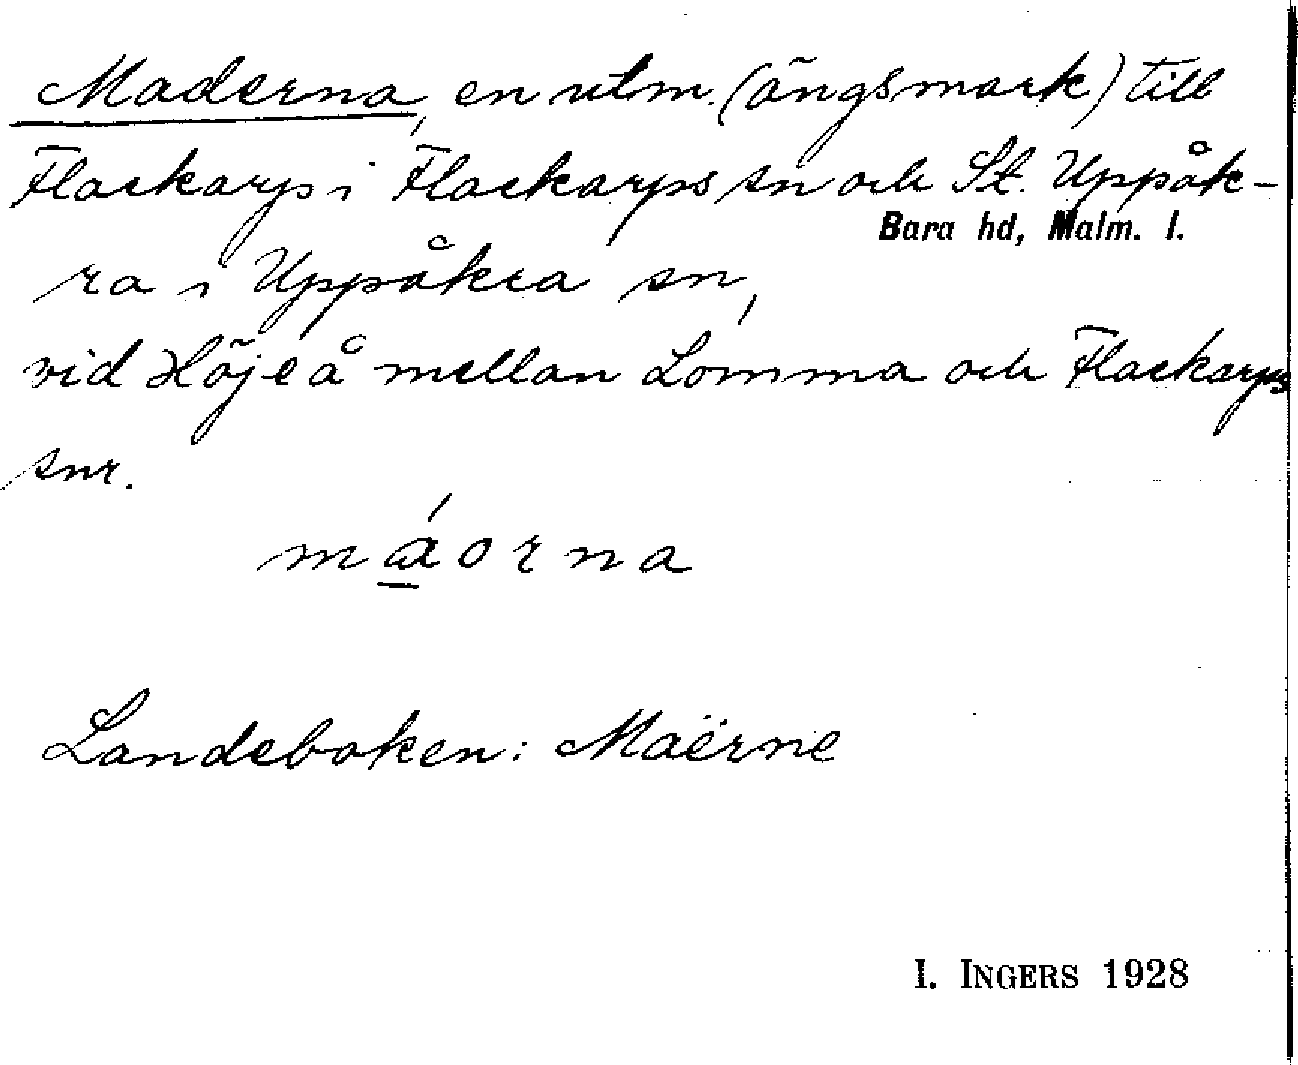 Maderna, en utm. (ängsmark) till
Flackarp i Flackarps sn och St. Uppåk-
Bara hd, Malm. l.
ra i Uppåkra sn,
vid Höje å mellan Lomma och Flackarps
snr.
máorna
Landeboken: Maërne
I. INGERS 1928